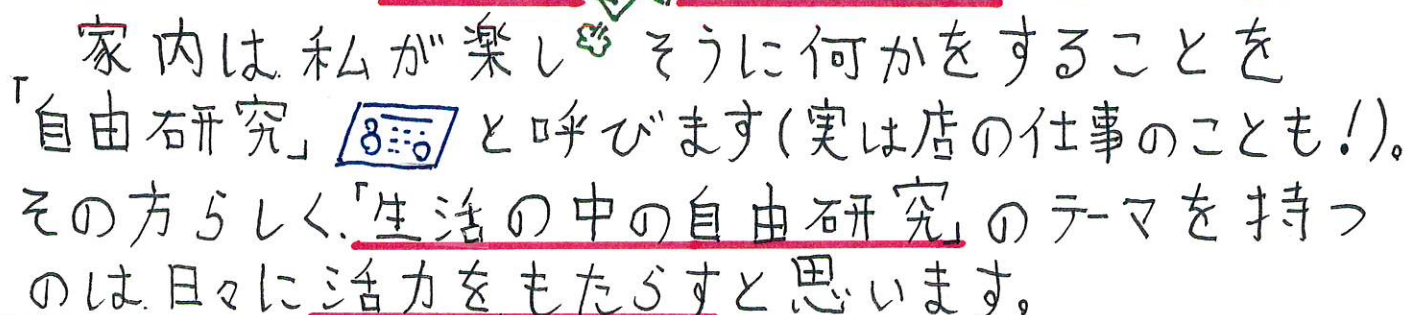 家内は私が楽しそうに何かをすることを
「自由研究」と呼びます(実は店の仕事のことも!)。
その方らしく、「生活の中の自由研究」のテーマを持つ
のは、日々に活力をもたらすと思います。